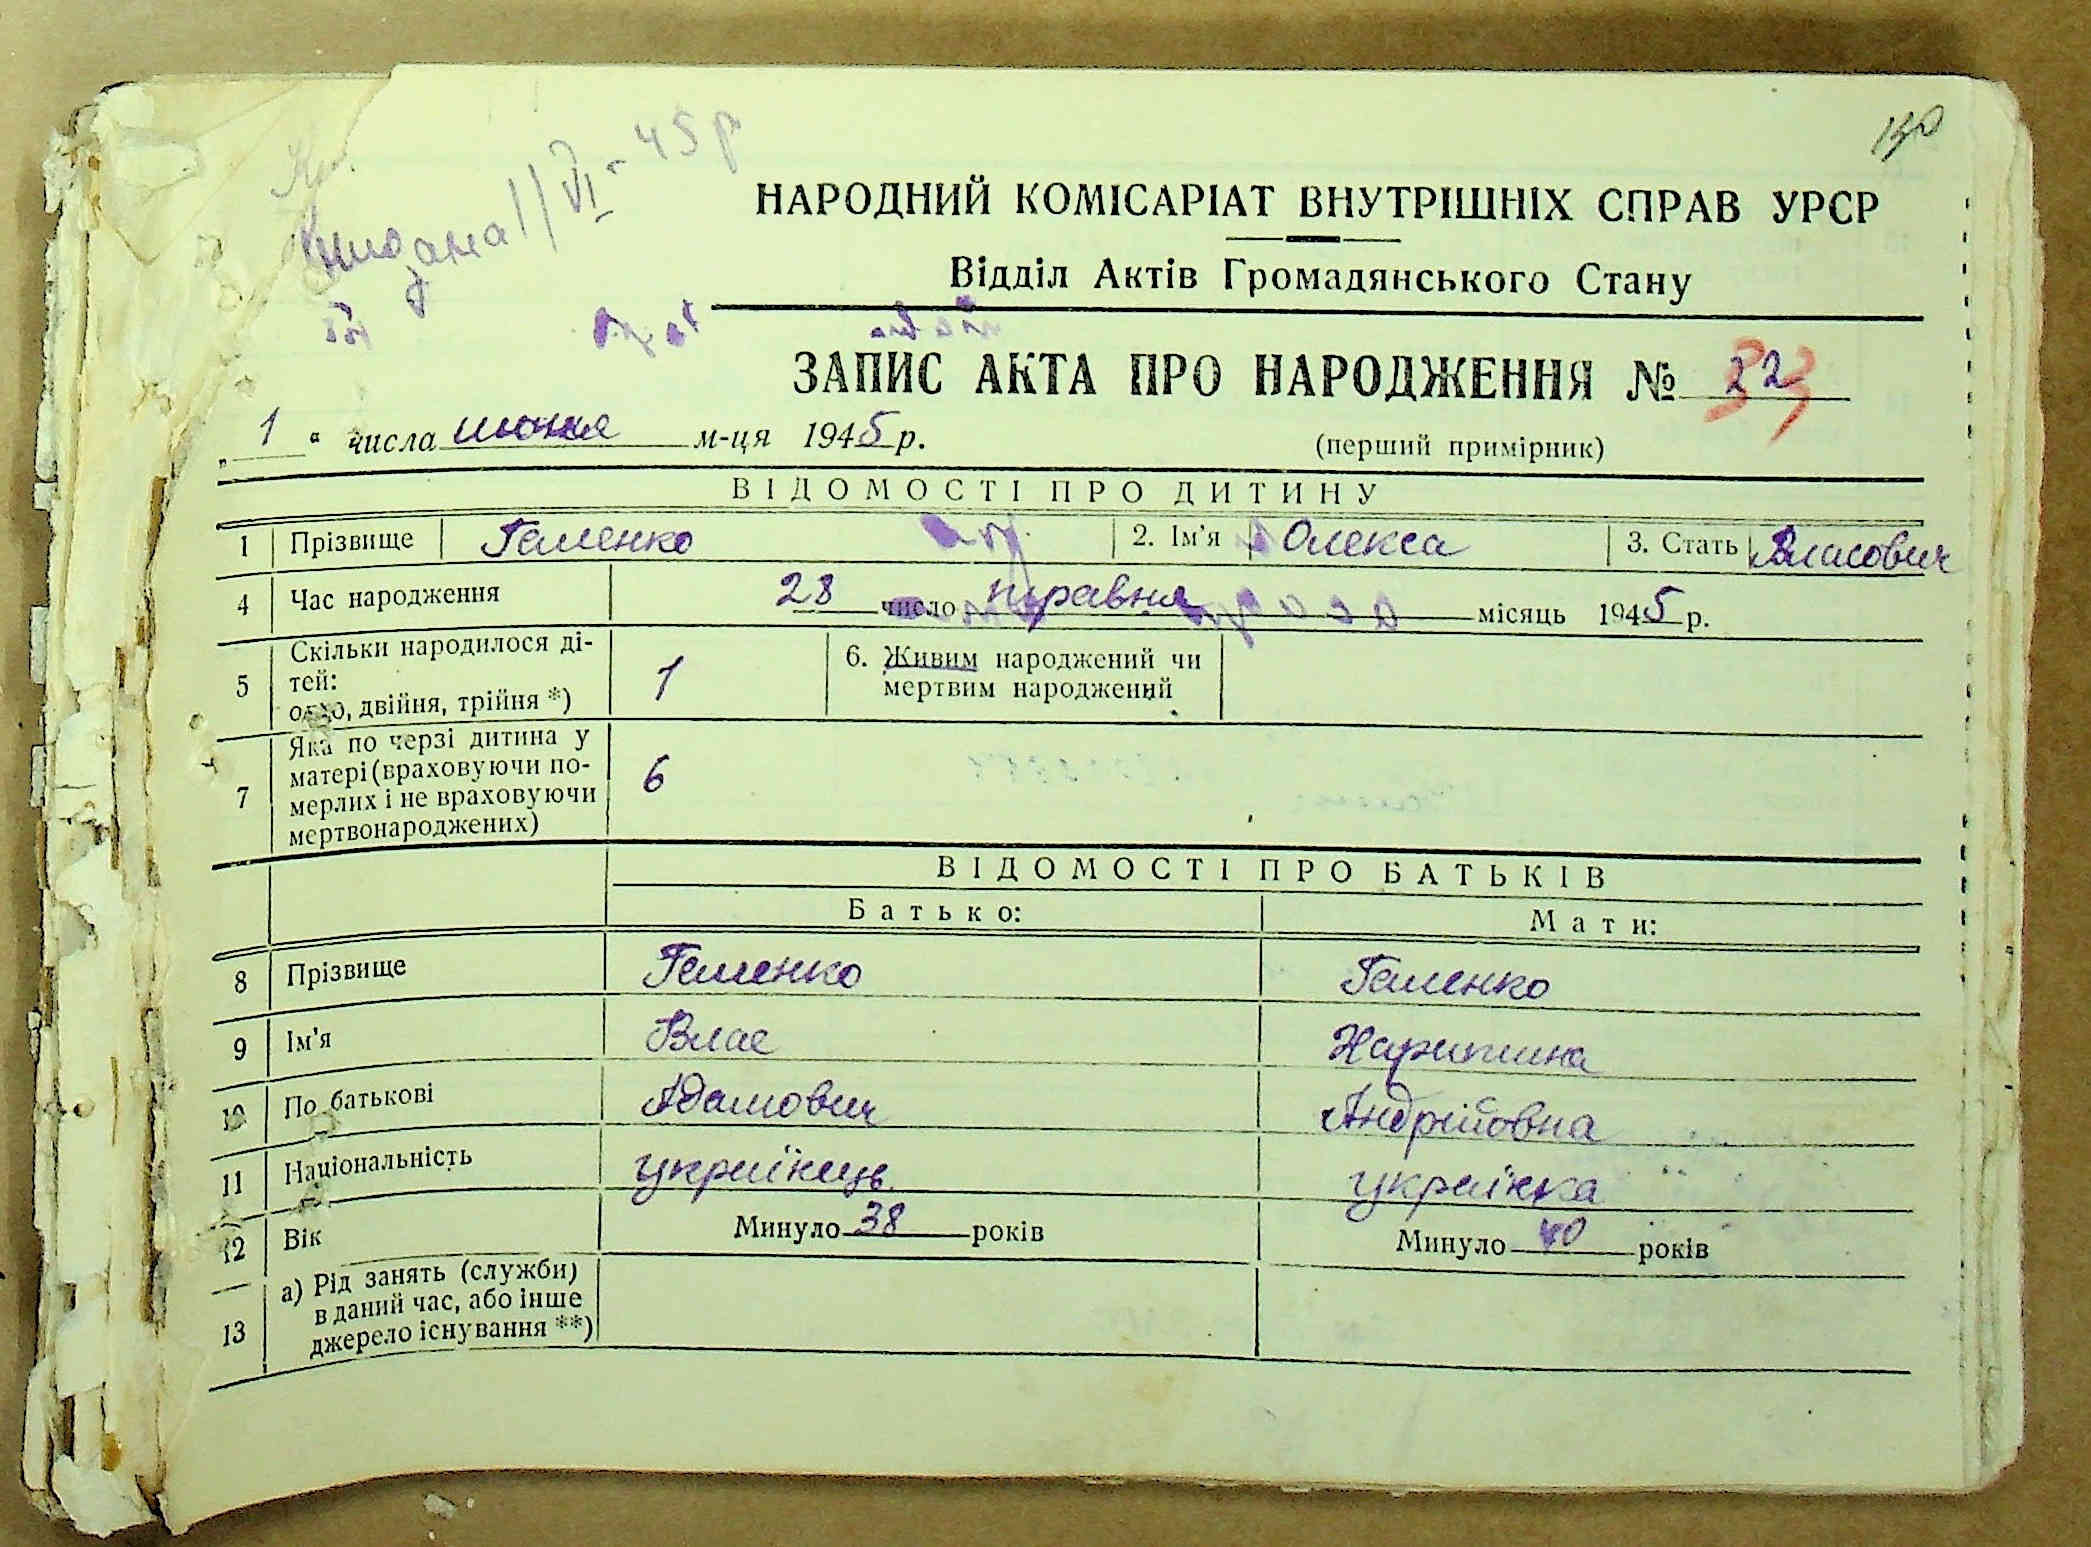 130
11/VI - 45 р
НАРОДНИЙ КОМІСАРІАТ ВНУТРІШНІХ СПРАВ УРСР
Відділ Актів Громадянського Стану
ЗАПИС АКТА ПРО НАРОДЖЕННЯ № 22
„ 1 “ числа июня м-ця 1945 р.
(перший примірник)
ВІДОМОСТІ ПРО ДИТИНУ
1 Прізвище Геменко 2. Ім'я Олекса 3. Стать Власович
4 Час народження 28 число травня місяць 1945 р.
5 Скільки народилося ді-
тей:
одно, двійня, трійня *) 1
6. Живим народжений чи
мертвим народжений
7 Яка по черзі дитина у
матері (враховуючи по-
мерлих і не враховуючи
мертвонароджених) 6
ВІДОМОСТІ ПРО БАТЬКІВ
Батько: Мати:
8 Прізвище Геменко Геменко
9 Ім'я Влас Харитина
10 По батькові Адамович Андрійовна
11 Національність українець українка
12 Вік Минуло 38 років Минуло 40 років
13 а) Рід занять (служби)
в даний час, або інше
джерело існування **)